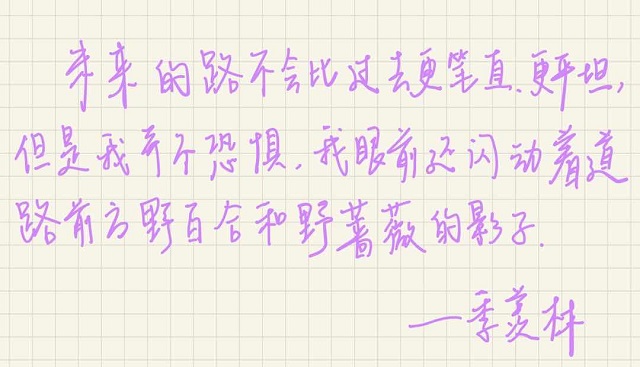 未来的路不会比过去更笔直、更平坦,
但是我并不恐惧,我眼前还闪动着道
路前方野百合和野蔷薇的影子.
—季羡林